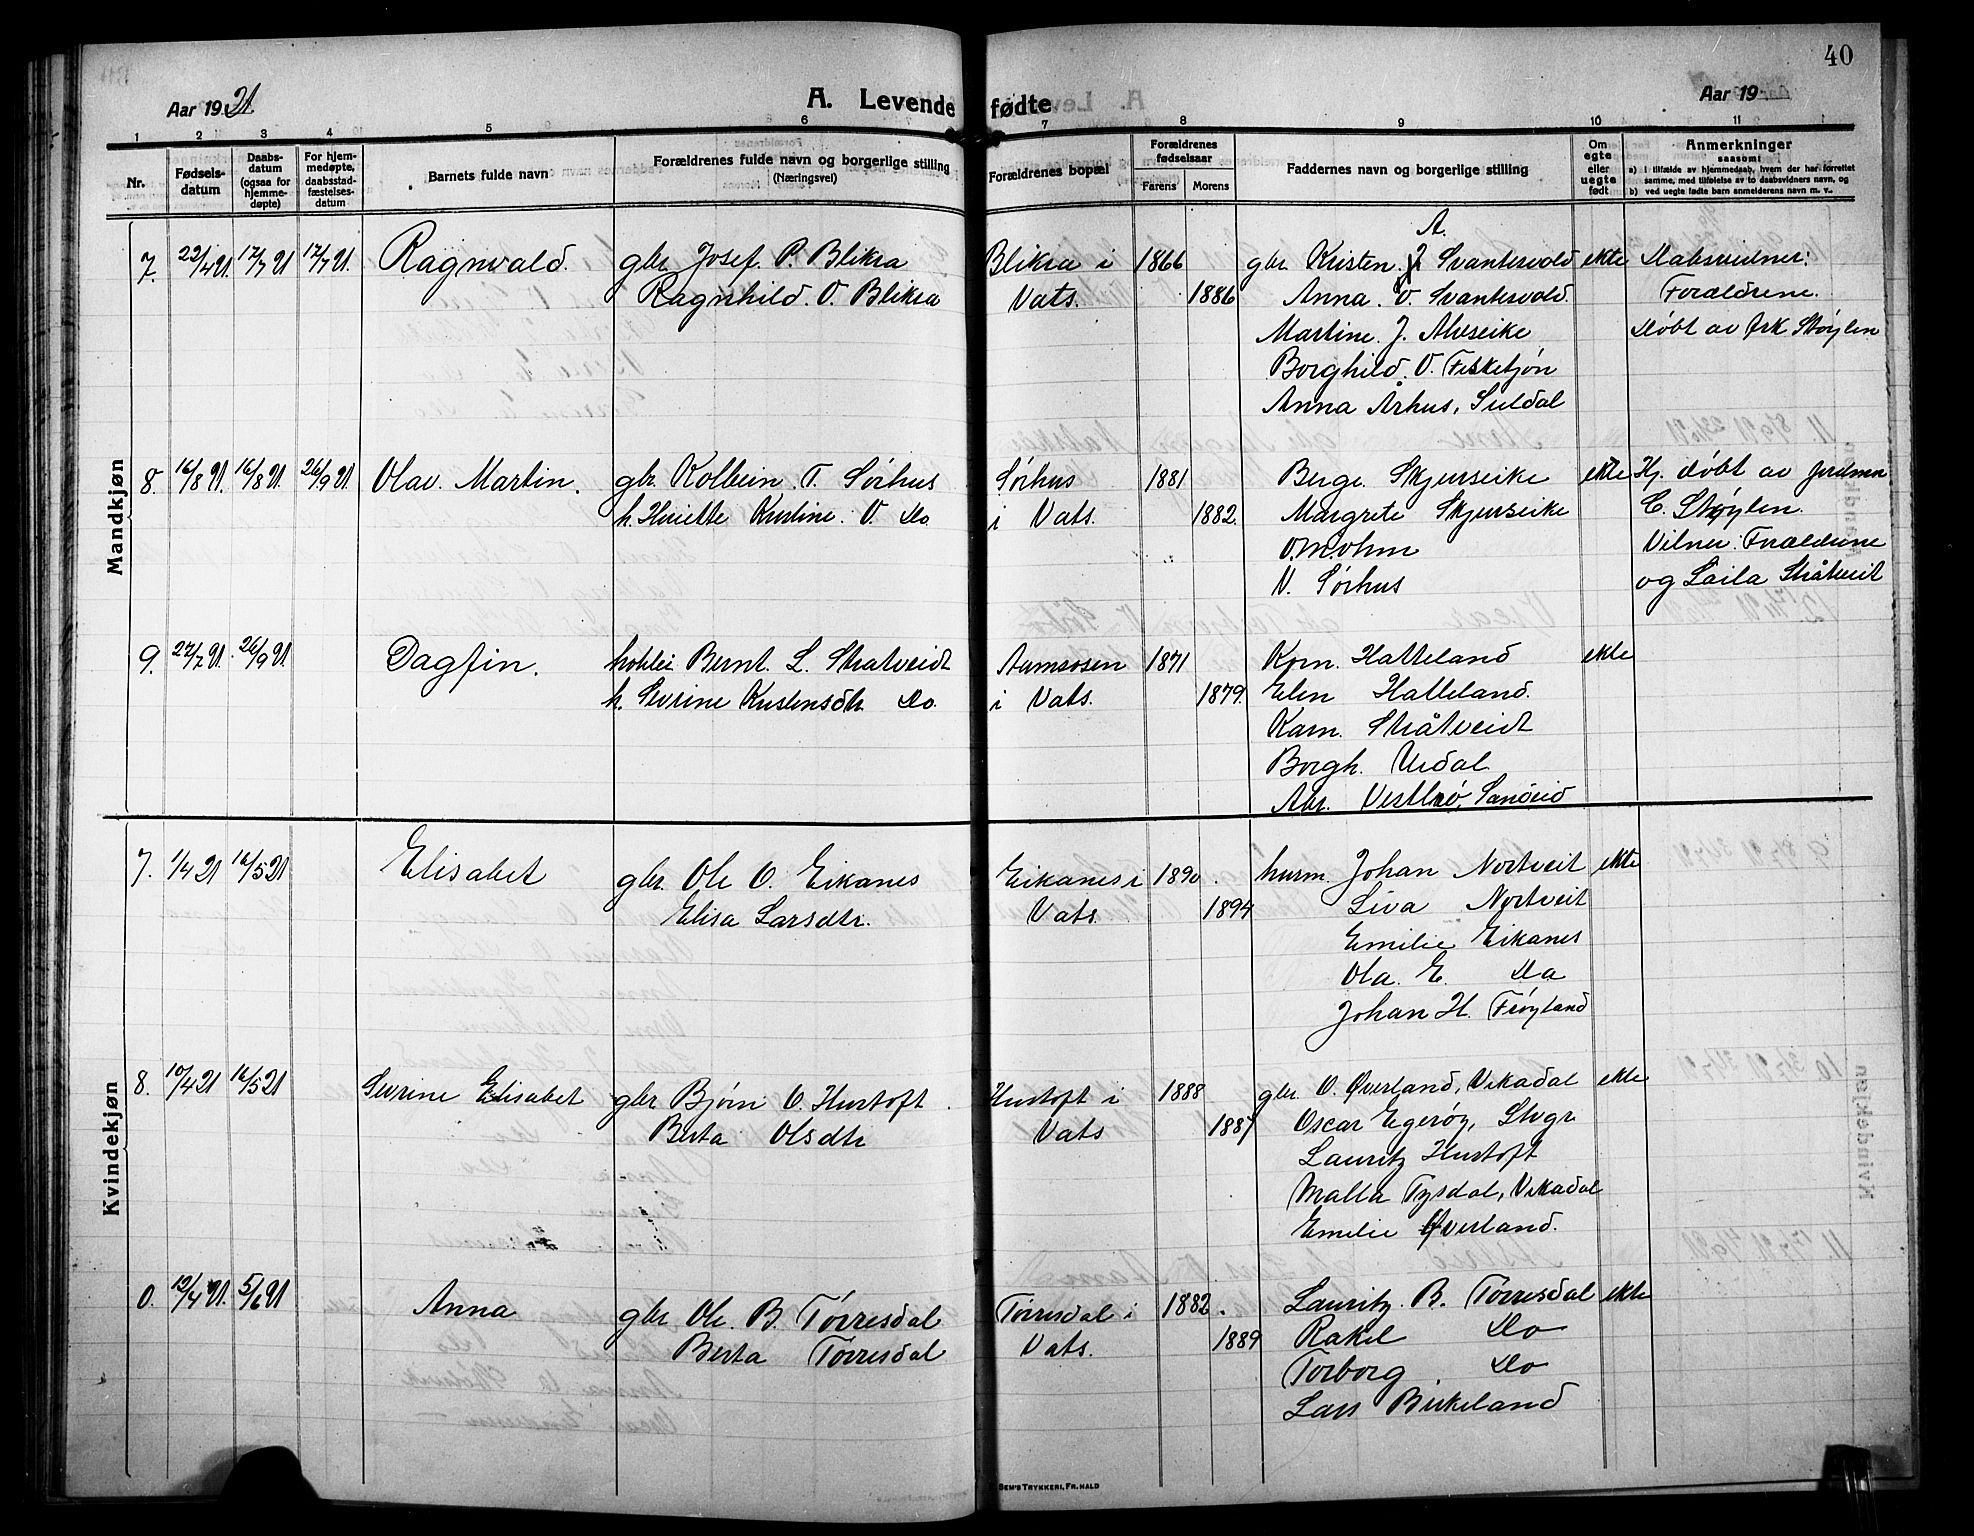 40
Aar 1921.
A. Levende fødte
Aar 19
1 2 3 4 5 6 7 8 9 10 11
Nr.
Fødsels-
datum
Daabs-
datum
(ogsaa for
hjemme-
døpte)
For hjem-
medøpte,
daabsstad-
fæstelses-
datum
Barnets fulde navn
Forældrenes fulde navn og borgerlige stilling
(Næringsvei)
Forældrenes bopæl
Forældrenes
fødselsaar
Farens Morens
Faddernes navn og borgerlige stilling
Om
egte
eller
uegte
født
Anmerkninger
saasom:
a) i tilfælde av hjemmedaab, hvem der har forrettet
samme, med tilføielse av to daabsvidners navn, og
b) ved uegte fødte barn anmelderens navn m. v..
Mandkjøn
7. 22/4 21. 17/7 21 17/7 21. Ragnvald. gbr. Josef. P. Blikra Blikra i 1866 gbr Kristen J Svantesvold ekte Daabsvidner:
A.
Ragnhild. O. Blikra Vats. 1886 Anna. O. Svantesvold. Forældrene.
Martine. J. Alvseike Døbt av frk Støylen
Borghild. O. Fisketjøn
Anna Århus, Suldal
8. 16/8 21. 16/8 21. 26/9 21. Olav. Martin. gbr. Kolbein. T. Sørhus Sørhus 1881 Berge Skjerseike ekte Hj. døbt av jordmor
h. Henriette Kristine. O. Do. i Vats. 1882. Margrete Skjerseike C. Støylen.
O. M. Ohm Vitner: Forældrene
V. Sørhus og Laila Stråtveit
9. 27/7 21. 26/9 21 Dagfin. Bernt. L. Stratveidt Aamsosen 1871 Korn. Hatteland ekte
h. Sevrine Kristensdtr. Do. i Vats. 1879. Elen Hatteland.
Karn. Stråtveidt
Borgh. Urdal
Abr. Vestbø, Sandeid
Kvindekjøn
7. 1/4 21 16/5 21 Elisabet gbr. Ole O. Eikanes Eikanes i 1890 husm. Johan Nortveit ekte
Elisa Larsdtr. Vats. 1894 Liva Nortveit
Emilie Eikanes
Ola. E. Do
Johan H. Frøyland
8. 10/4 21 16/5 21 Sevrine Elisabet gbr Bjørn O. Hustoft Hustoft i 1888 gbr. O. Øverland, Vikadal ekte
Berta Olsdtr Vats 1887 Oscar Egerøy, Stvgr
Lauritz Hustoft
Malla Tysdal, Vikadal
Emilie Øverland.
0. 12/4 21. 5/6 21 Anna gbr Ole. B. Tørresdal Tørresdal i 1882. Lauritz. B. Tørresdal ekte
Berta Tørresdal Vats. 1889 Rakel Do
Torborg Do
Lars Birkeland
SEM'S TRYKKERI, FR. HALD